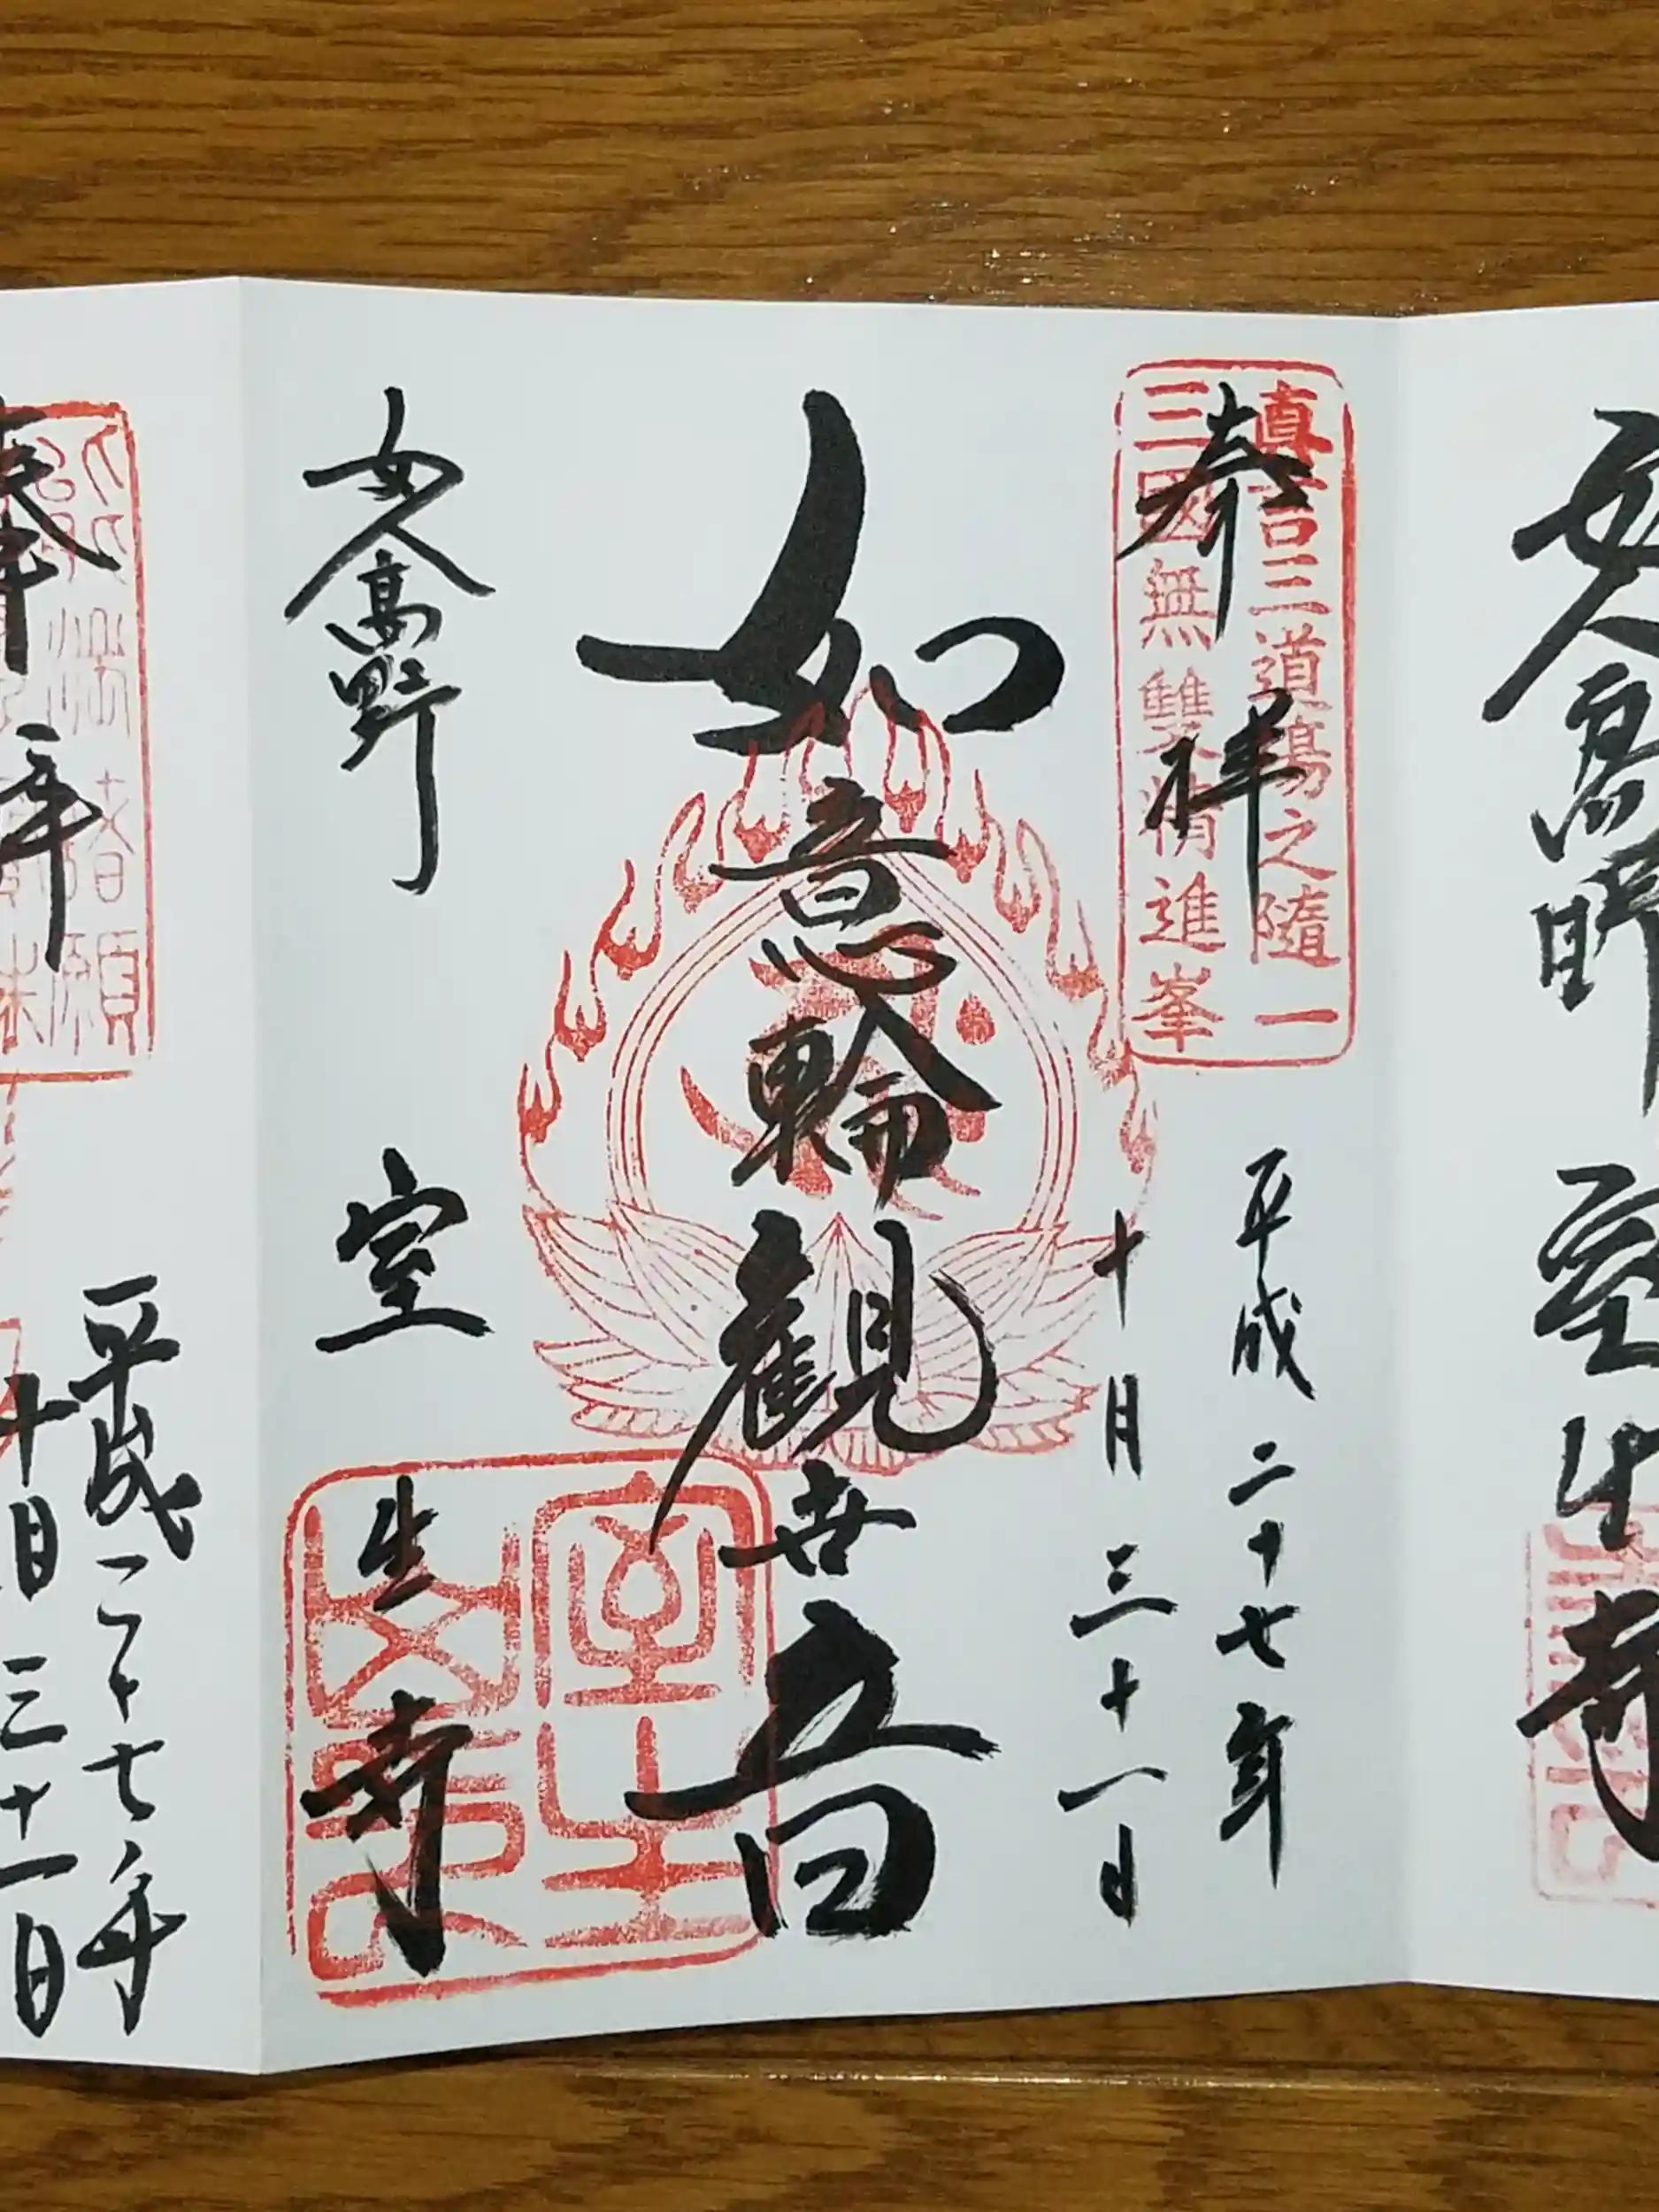 女人高野 室生寺
奉拝
真言三道場之随一
三國無雙精進峯
平成二十七年
十月三十一日
如意輪観世音
女人高野
室生寺
奉拝
平成二十七年
十月三十一日